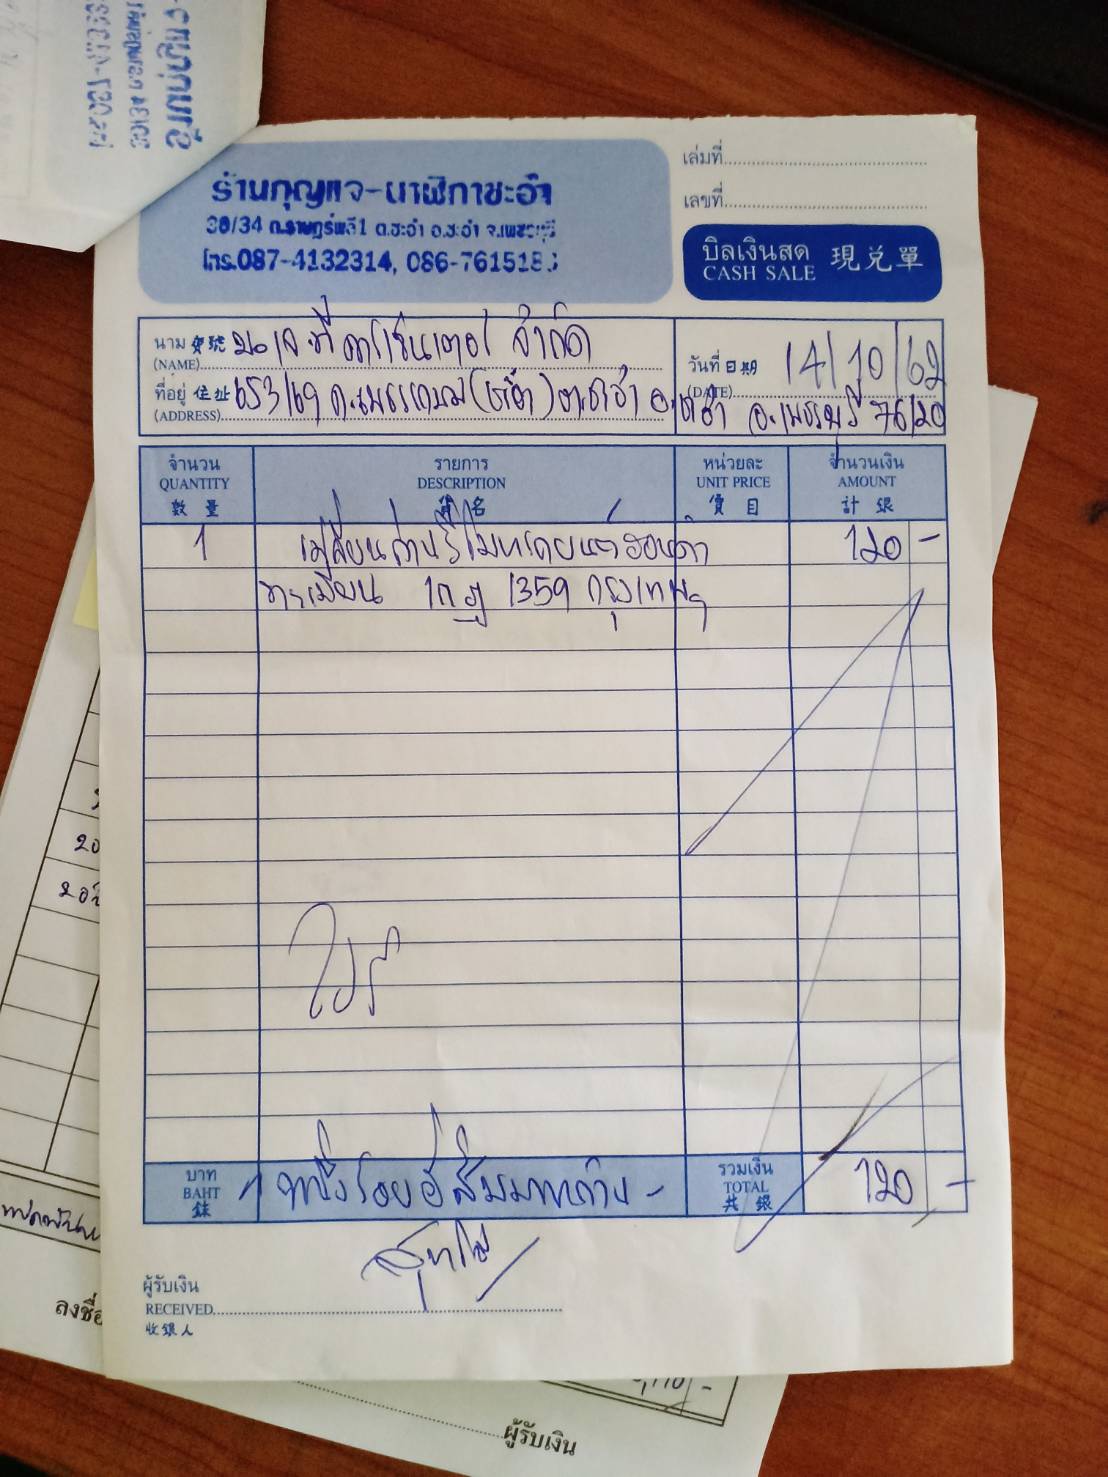 เล่มที่
เลขที่
ร้านกุญแจ-นาฬิกาชะอำ
38/34 ถ.ราษฎร์พลี1 ต.ชะอำ อ.ชะอำ จ.เพชรบุรี
โทร.087-4132314, 086-761518
บิลเงินสด
CASH SALE 現兑單
นาม 寶號 บ.เจ.ที คาร์เซ็นเตอร์ จำกัด
(NAME)
วันที่ 日期 14/10/62
(DATE)
ที่อยู่ 住址 653/69 ถ.เพชรเกษม (ชะอำ) ต.ชะอำ อ.ชะอำ จ.เพชรบุรี 76120
(ADDRESS)
จำนวน รายการ หน่วยละ จำนวนเงิน
QUANTITY DESCRIPTION UNIT PRICE AMOUNT
數 量 名 價 目 計 銀
1 เปลี่ยนถ่านรีโมทรถยนต์ฮอนด้า 120 -
ทะเบียน 1กฎ 1359 กรุงเทพฯ
บาท หนึ่งร้อยยี่สิบบาทถ้วน - รวมเงิน 120 -
BAHT TOTAL
銖 共 銀
ผู้รับเงิน
RECEIVED
收銀人
ลงชื่อ
ผู้รับเงิน